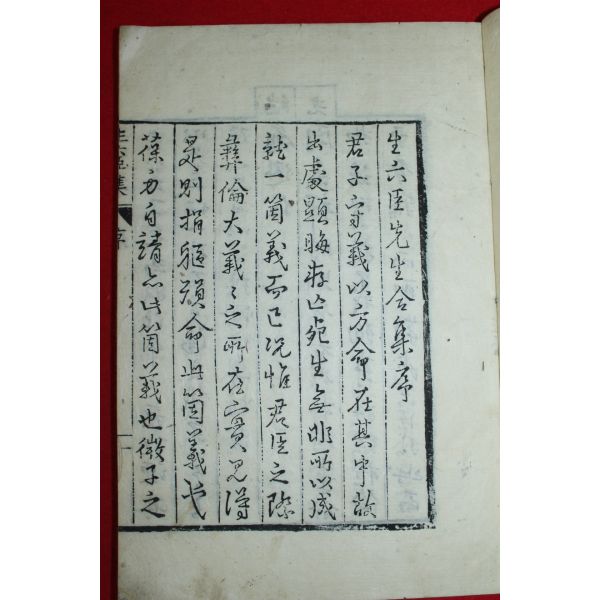 生六臣先生合集序
君子守義以方命在其中故
出處顯晦存亡死生無非所以成
就一箇義而已況惟君臣之際
彛倫大義〻之所在實見得
是則捐軀殞命此箇義也
葆身自靖亦此箇義也微子之
生六臣集 序 一